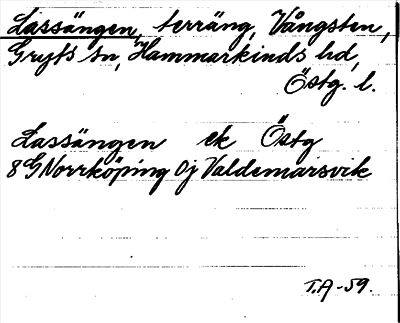 Lassängen, terräng, Vångsten,
Gryts sn, Hammarkinds hd,
Östg. l.
Lassängen ek Östg
8G Norrköping 0j Valdemarsvik
T.A-59.